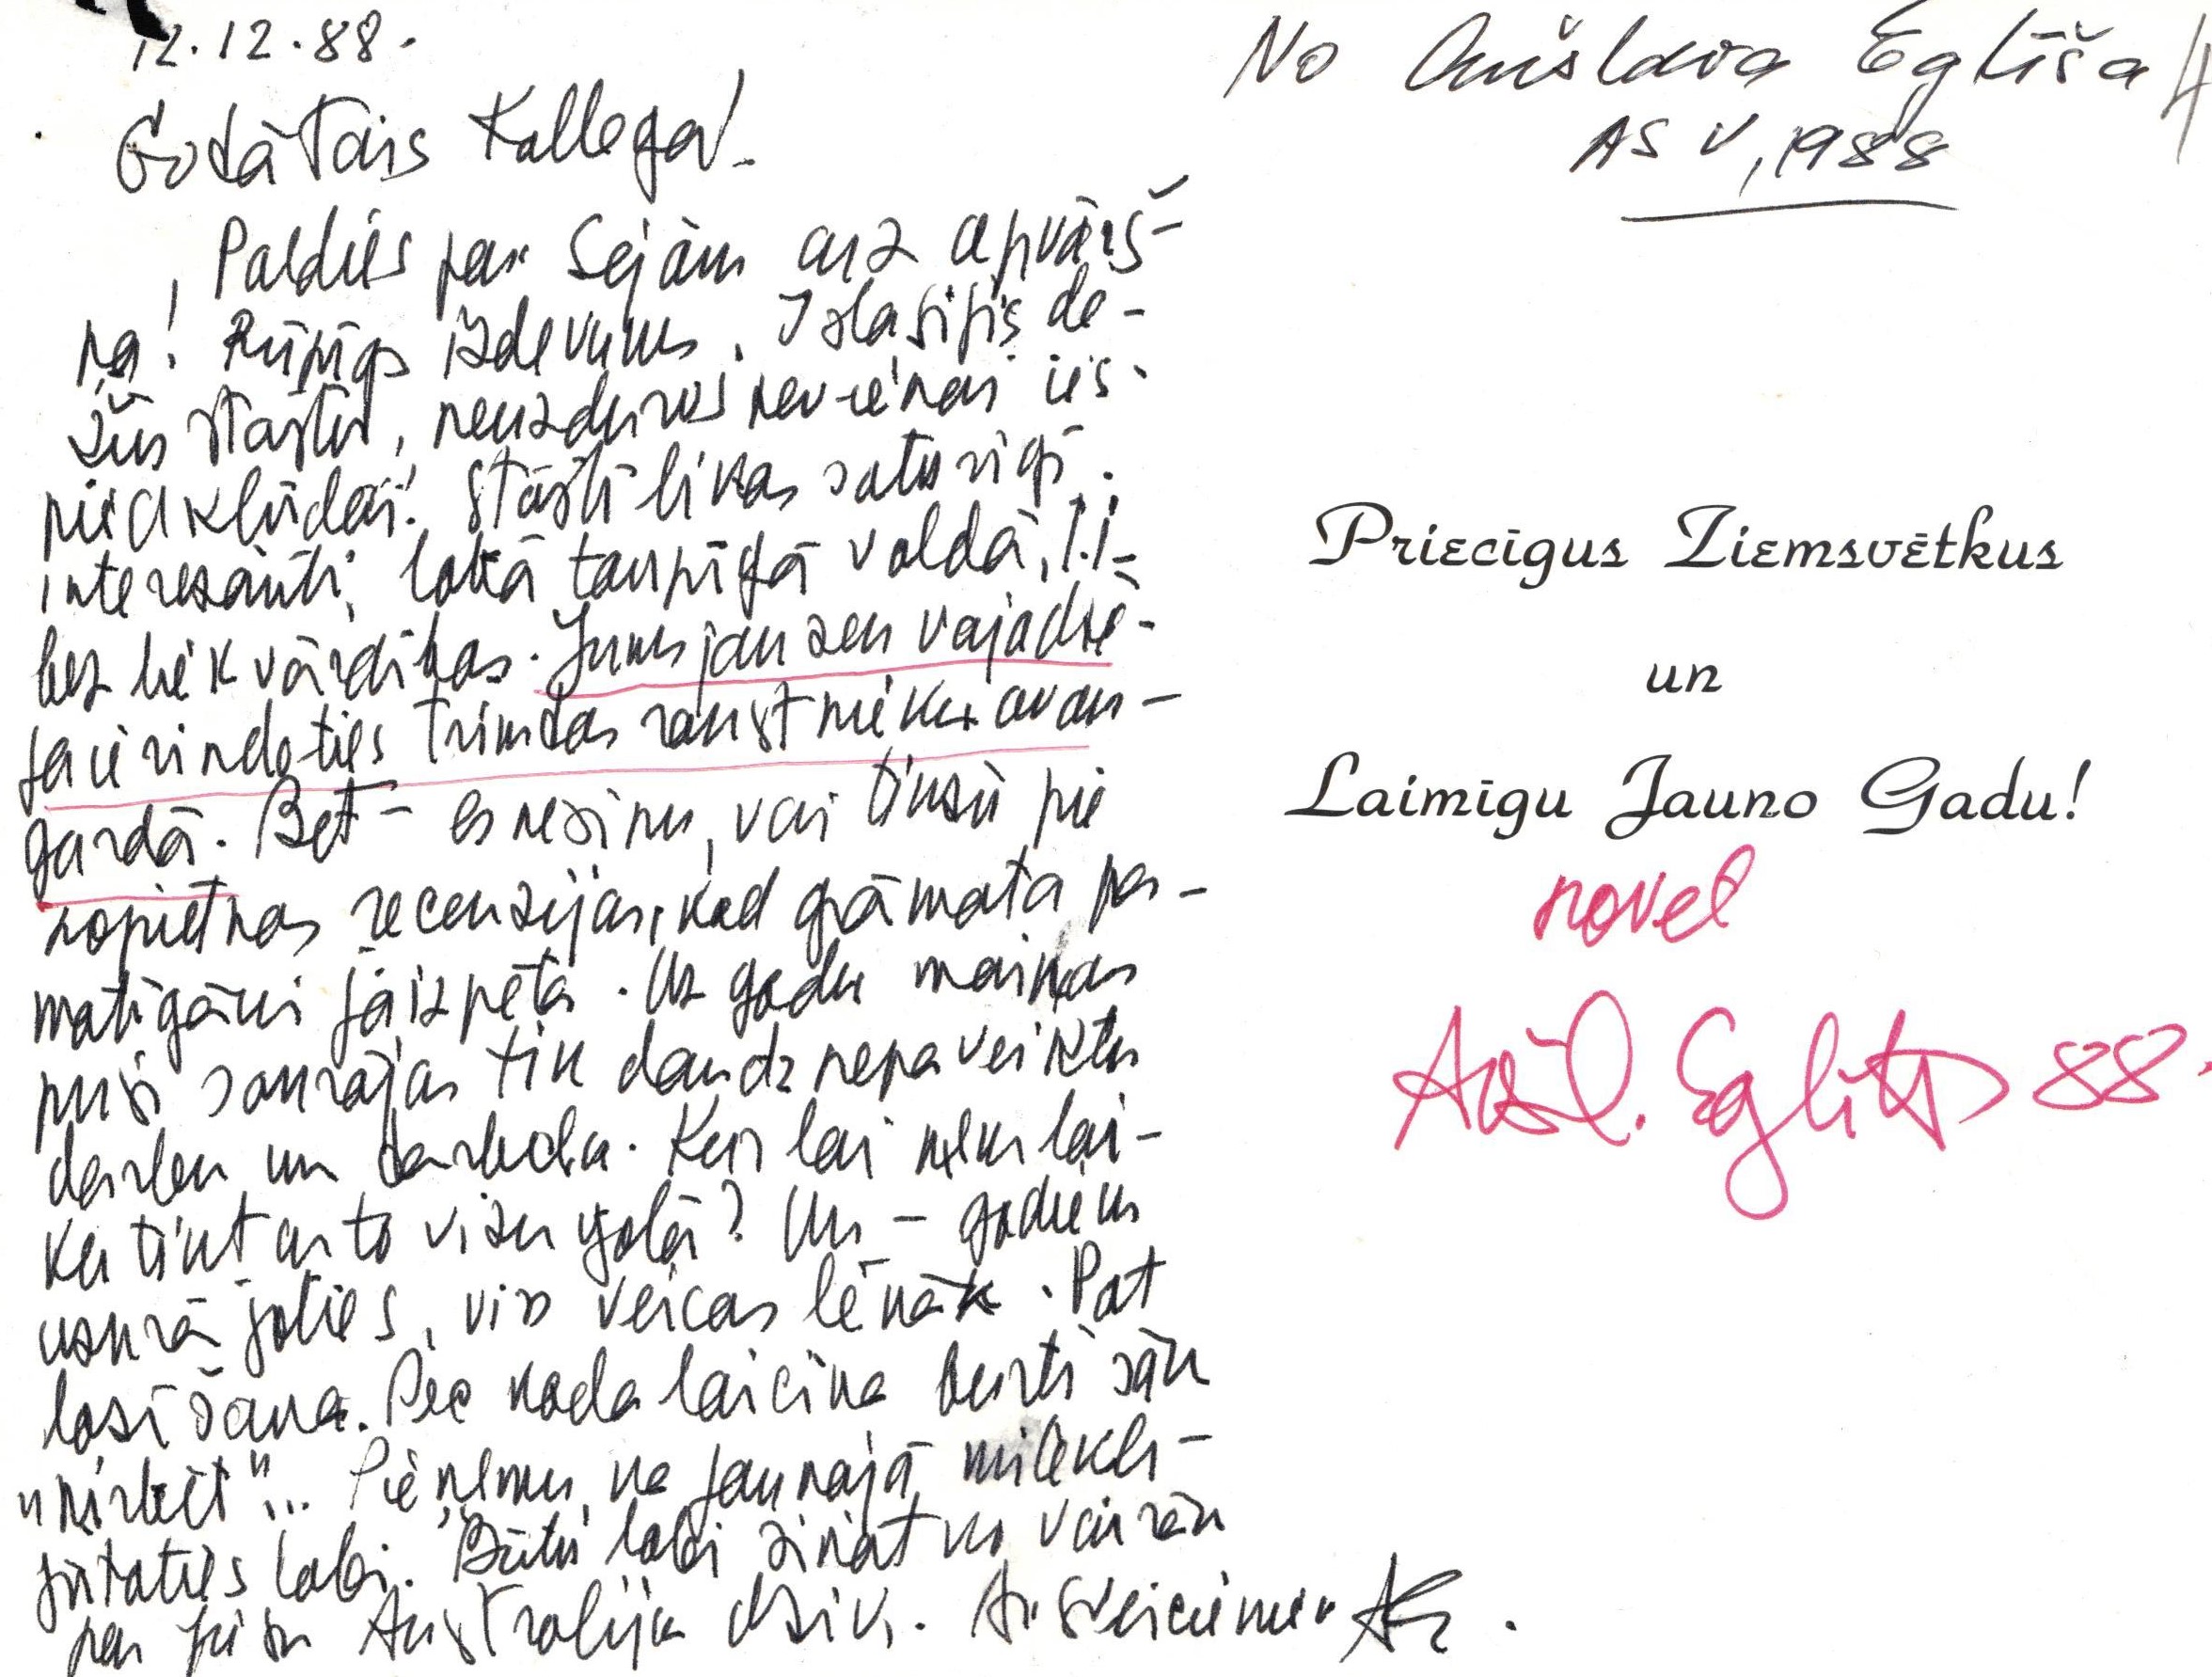 12.12.88.
Godātais Kollega!
Paldies par Sejām aiz apvārš-
ņa! Rūpīgs izdevums. Izlasījis de-
žus stāstus, neuzduros nevienai ies-
pied kļūdai! Stāsti likās saturīgi,
interesanti, labā taupīgā valodā, t.i.
bez liekvārdības. Jums jau sen vajadzē-
ja ierindoties trimdas rakstnieku avan-
gardā. Bet – es nezinu, vai tikšu pie
nopietnas recenzijas, kad grāmata pa-
matīgāki jāizpēta. Uz gadu maiņas
pusi sakrājas tik daudz nepaveiktu
darbu un darbiņu. Kur lai ņem lai-
ku tikt ar to visu galā? Un – gadiem
uzkrājoties, viss veicas lēnāk. Pat
lasīšana. Pēc kāda laiciņa burti sāk
"ņirbēt"... Pieņemu, ka jaunajā mītekli
jūtaties labi. Būtu labi zināt ko vairāk
par jūsu Austrālijas dzīvi. Ar sveicieniem AE.
No Anšlava Eglīša 4
ASV, 1988
Priecīgus Ziemsvētkus
un
Laimīgu Jauno Gadu!
novēl
Anšl. Eglītis 88.